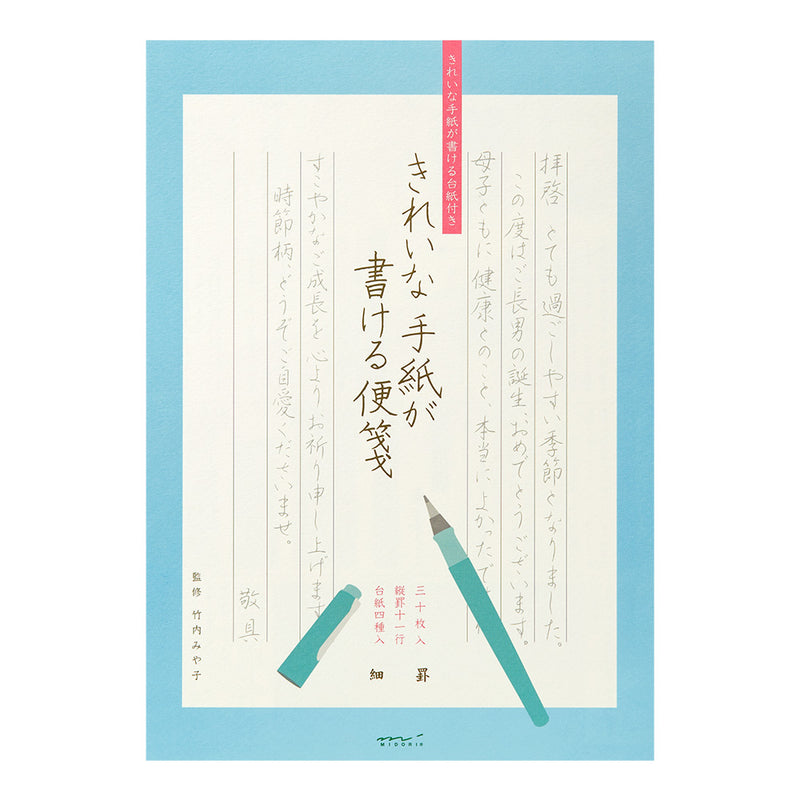 きれいな手紙が書ける台紙付き
拝啓 とても過ごしやすい季節となりました。
この度はご長男の誕生、おめでとうございます。
母子ともに健康とのこと、本当によかったで
きれいな手紙が
書ける便箋
すこやかなご成長を心よりお祈り申し上げます
時節柄、どうぞご自愛くださいませ。
敬具
三十枚入
縦罫十一行
台紙四種入
細罫
監修 竹内みや子
MIDORI®